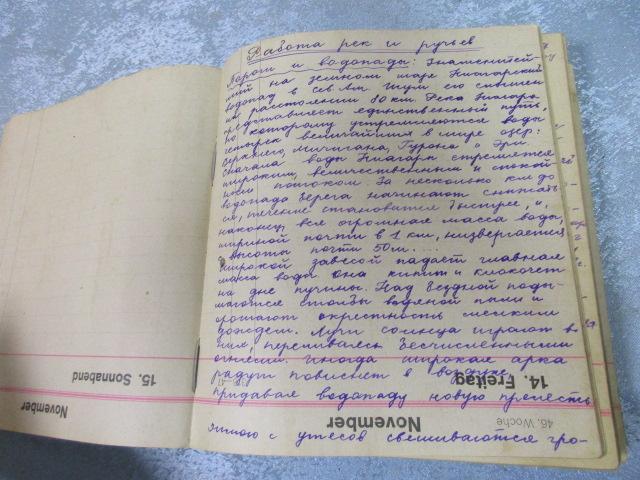 Работа рек и ручьев
Пороги и водопады: Знаменитей-
ший на земном шаре Ниагарский
водопад в Сев Ам. Шум его слышен
на расстоянии 80 км. Река Ниагара
представляет единственный путь,
по которому устремляются воды
четырех величайших в мире озер:
Верхнего, Мичигана, Гурона и Эри.
Сначала воды Ниагары стремятся
широким, величественным и спокой
ным потоком. За несколько км до
водопада берега начинают снижать
ся, течение становится быстрее, и,
наконец, вся огромная масса воды,
шириной почти в 1 км, низвергается
с высоты почти 50 м. ...
Широкой завесой падает главная
масса воды она кипит и клокочет
на дне пучины. Над бездной поды-
маются столбы водяной пыли и
орошают окрестность мелким
дождем. Лучи солнца играют в
них, переливаясь бесчисленными
огнями. Иногда широкая арка
радуги повиснет в воздухе,
придавая водопаду новую прелесть
с утесов свешиваются гро-
14. Freitag
November
46. Woche
15. Sonnabend
November